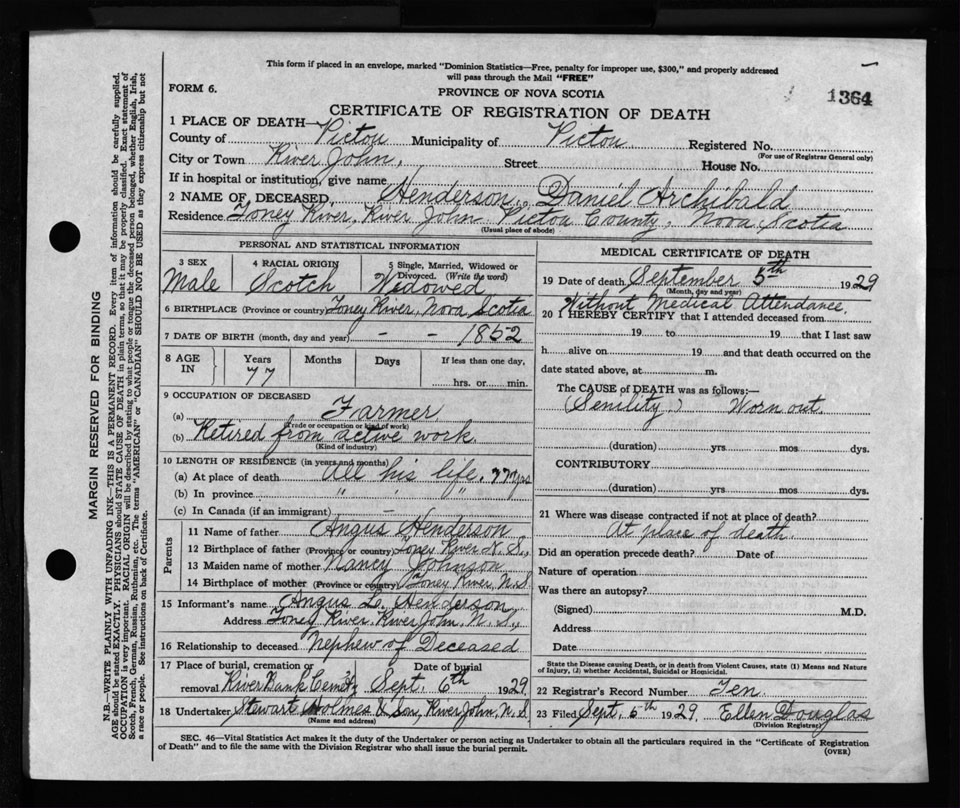 This form if placed in an envelope, marked "Dominion Statistics—Free, penalty for improper use, $300," and properly addressed
will pass through the Mail "FREE"
FORM 6.
PROVINCE OF NOVA SCOTIA
1364
CERTIFICATE OF REGISTRATION OF DEATH
1 PLACE OF DEATH—
County of Pictou Municipality of Pictou Registered No.
(For use of Registrar General only)
City or Town River John, Street House No.
If in hospital or institution, give name
2 NAME OF DECEASED, Henderson, Daniel Archibald
Residence Toney River, River John Pictou County, Nova Scotia
(Usual place of abode)
PERSONAL AND STATISTICAL INFORMATION
3 SEX 4 RACIAL ORIGIN 5 Single, Married, Widowed or
Divorced. (Write the word)
Male Scotch Widowed
6 BIRTHPLACE (Province or country) Toney River, Nova Scotia
7 DATE OF BIRTH (month, day and year) – – 1852
8 AGE IN Years Months Days If less than one day,
77 hrs. or min.
9 OCCUPATION OF DECEASED
(a) Farmer
(Trade or occupation or kind of work)
(b) Retired from active work.
(Kind of industry)
10 LENGTH OF RESIDENCE (in years and months)
(a) At place of death All his life. 77 yrs
(b) In province " " "
(c) In Canada (if an immigrant) –
Parents
11 Name of father Angus Henderson
12 Birthplace of father (Province or country) Toney River N.S.,
13 Maiden name of mother Nancy Johnson
14 Birthplace of mother (Province or country) Toney River, N.S.
15 Informant's name Angus L. Henderson,
Address Toney River. River John, N.S.,
16 Relationship to deceased Nephew of Deceased
17 Place of burial, cremation or Date of burial
removal River Bank Cemety Sept. 6th 1929
18 Undertaker Stewart Holmes & Son, River John, N.S.
(Name and address)
MEDICAL CERTIFICATE OF DEATH
19 Date of death September 5th 1929
(Month, day and year)
Without Medical Attendance.
20 I HEREBY CERTIFY that I attended deceased from
19 to 19 that I last saw
h alive on 19 and that death occurred on the
date stated above, at m.
The CAUSE of DEATH was as follows:—
(Senility) Worn out
(duration) yrs mos dys.
CONTRIBUTORY
(duration) yrs mos dys.
21 Where was disease contracted if not at place of death?
At place of death.
Did an operation precede death? Date of
Nature of operation
Was there an autopsy?
(Signed) M.D.
Address
Date
State the Disease causing Death, or in death from Violent Causes, state (1) Means and Nature
of Injury, (2) whether Accidental, Suicidal or Homicidal.
22 Registrar's Record Number Ten
23 Filed Sept. 5th 1929 Ellen Douglas
(Division Registrar)
SEC. 46—Vital Statistics Act makes it the duty of the Undertaker or person acting as Undertaker to obtain all the particulars required in the "Certificate of Registration
of Death" and to file the same with the Division Registrar who shall issue the burial permit.
(OVER)
MARGIN RESERVED FOR BINDING
N.B.—WRITE PLAINLY WITH UNFADING INK—THIS IS A PERMANENT RECORD. Every item of information should be carefully supplied.
AGE should be stated EXACTLY. PHYSICIANS should STATE CAUSE OF DEATH in plain terms, so that it may be properly classified. Exact statement of
OCCUPATION is very important. RACIAL ORIGIN will be described by stating to what people or tongue the deceased person belonged, whether English, Irish,
Scotch, French, German, Russian, Ruthenian, etc. The terms "AMERICAN" or "CANADIAN" SHOULD NOT BE USED as they express citizenship but not
a race or people. See instructions on back of Certificate.